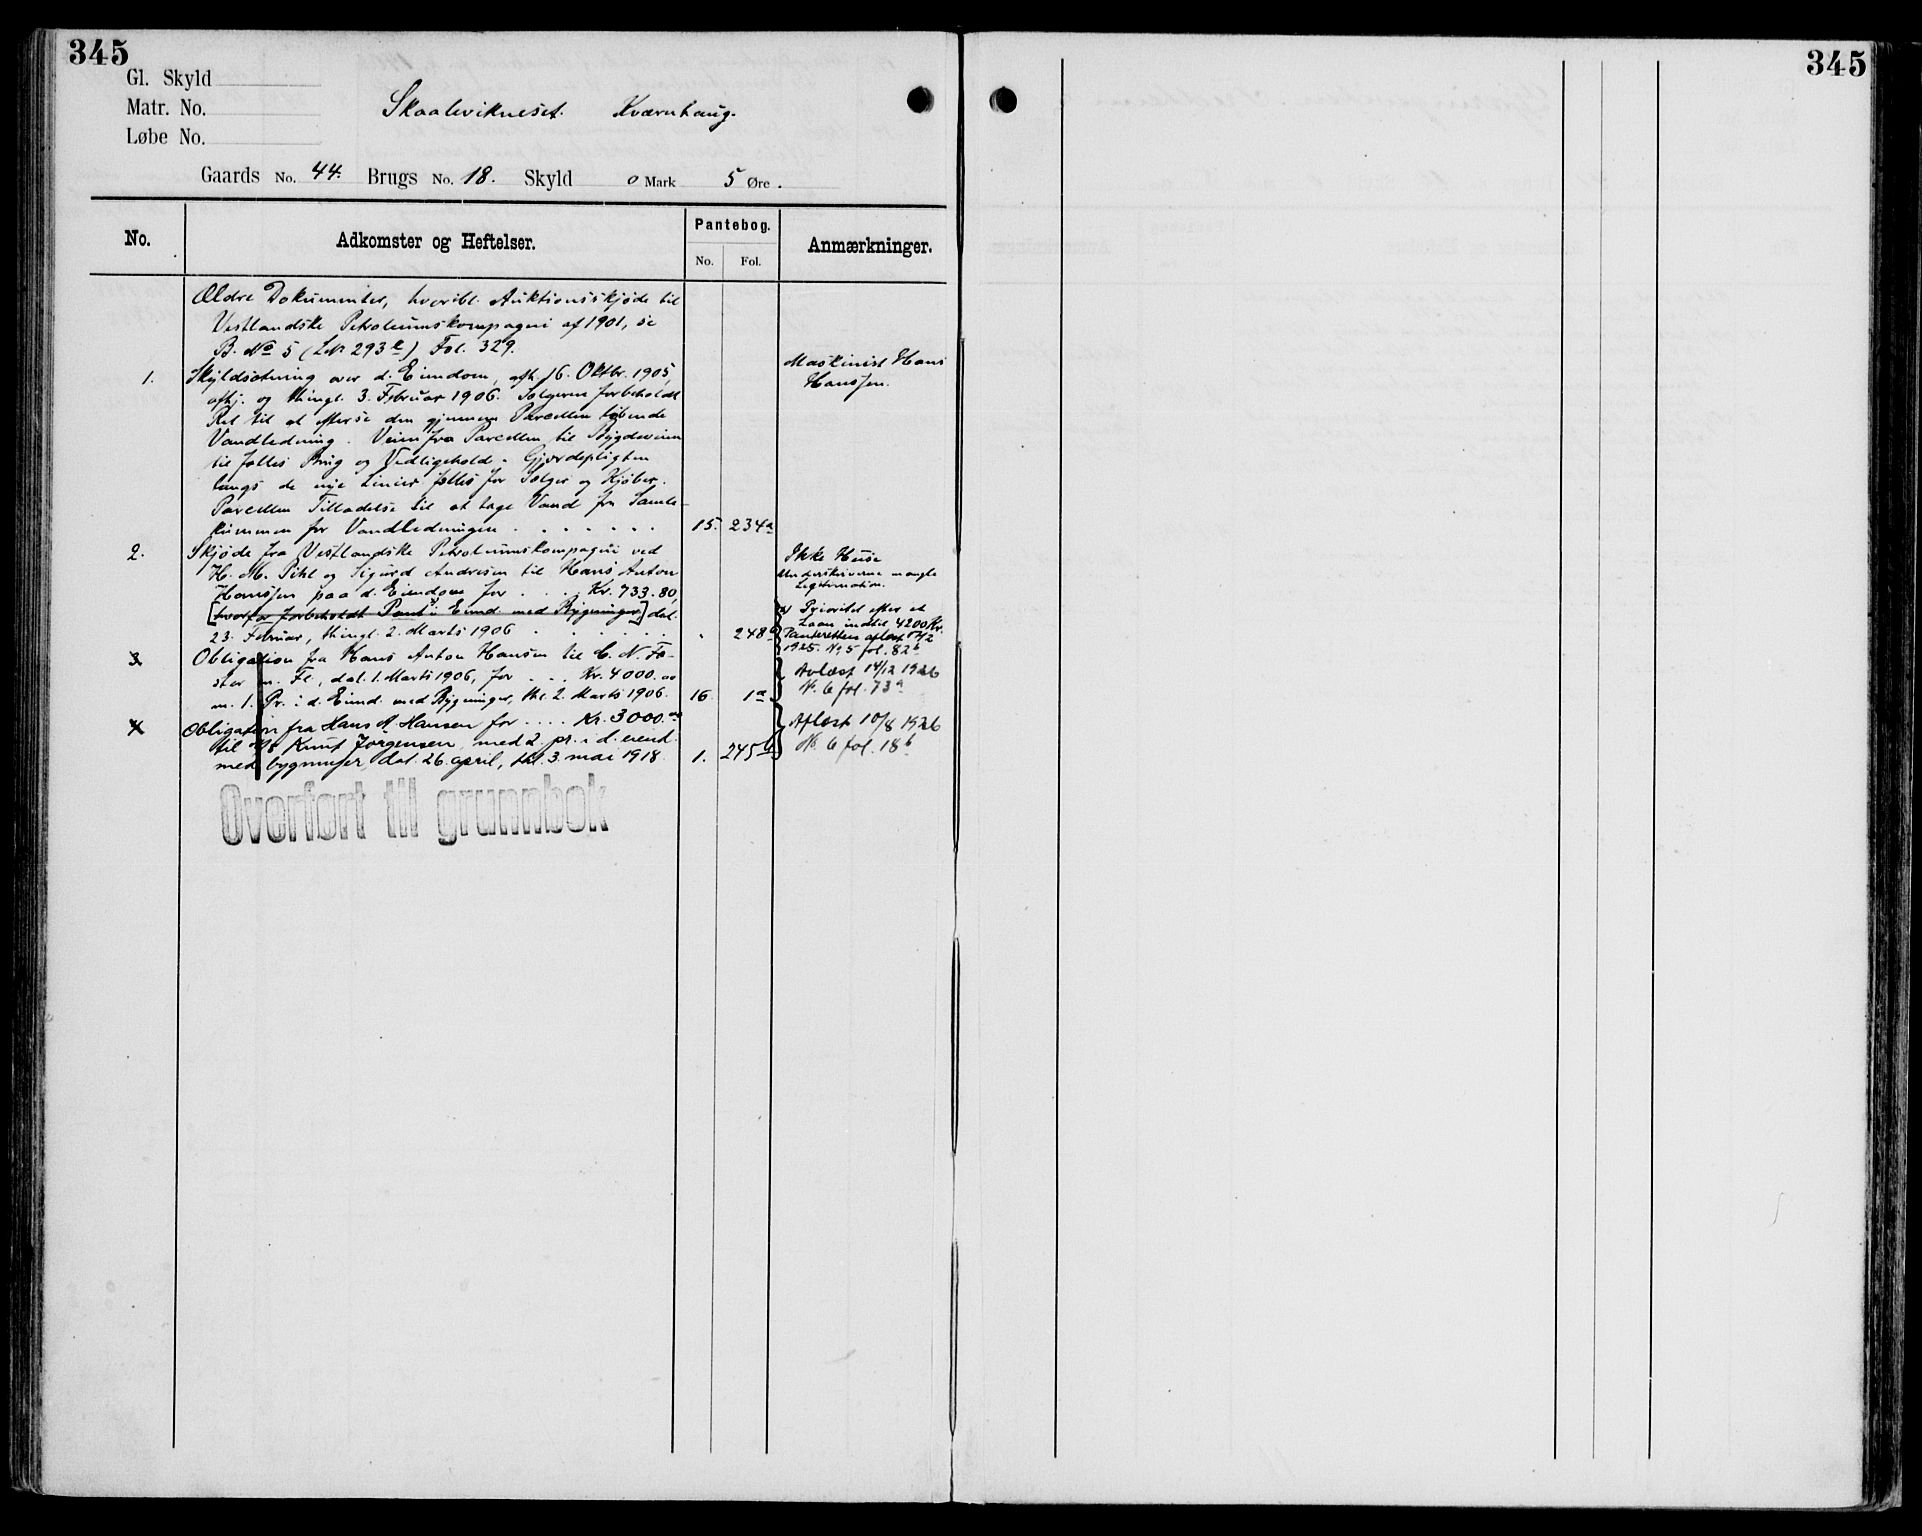 345
345
Gl. Skyld
Matr. No.
Løbe No.
Skaalevikneset. Kværnhaug.
Gaards No. 44. Brugs No. 18. Skyld 0 Mark 5 Øre.
No.
Adkomster og Heftelser.
Pantebog.
No. Fol.
Anmærkninger.
Ældre Dokumenter, hvoribl. Auktionsskjøde til
Vestlandske Petroleumskompagni af 1901, se
B. No 5 (LN 293 e) Fol. 329.
1. Skyldsætning over d. Eiendom, afh. 16. Oktbr. 1905,
afhj. og thingl. 3. Februar 1906. Sælgeren forbeholdt
Ret til at efterse den gjennem Parcellen løbende
Vandledning. Veien fra Parcellen til Bygdeveien
til fælles Brug og Vedligehold. Gjærdepligten
langs de nye Linier fælles for Sælger og Kjøber.
Parcellen Tilladelse til at tage Vand fra Samle-
kummen for Vandledningen . . . . . . . 15. 234a
Maskinist Hans
Hanssen.
2. Skjøde fra Vestlandske Petroleumskompagni ved
H. M. Pihl og Sigurd Andresen til Hans Anton
Hanssen paa d. Eiendom for . . . Kr. 733.80,
[hvorfor forbeholdt Pant i Eiend. med Bygninger] dat.
23. Februar, thingl. 2. Marts 1906 . . . . . " 248b
Ikke Huse
Underskriverne mangle
Legitimation.
Prioritet efter et
Laan indtil 4200 Kr.
Panteretten aflæst 12/2
1925. N. 5 fol. 82b
3. Obligation fra Hans Anton Hansen til C. N. Fo-
ster m. Fl., dat. 1. Marts 1906, for . . . Kr. 4000.00
m. 1. Pr. i d. Eiend. med Bygninger, thl. 2. Marts 1906. 16. 1a
Avlæst 14/12 1926
N. 6 fol. 73a
4. Obligation fra Hans A. Hansen for .... Kr. 3000.00
til Knut Jørgensen, med 2. pr. i d. eiend.
med bygninger, dat. 26. april, thl. 3. mai 1918. 1. 245b
Aflæst 10/8 1926
N. 6 fol. 18b
Overført til grunnbok